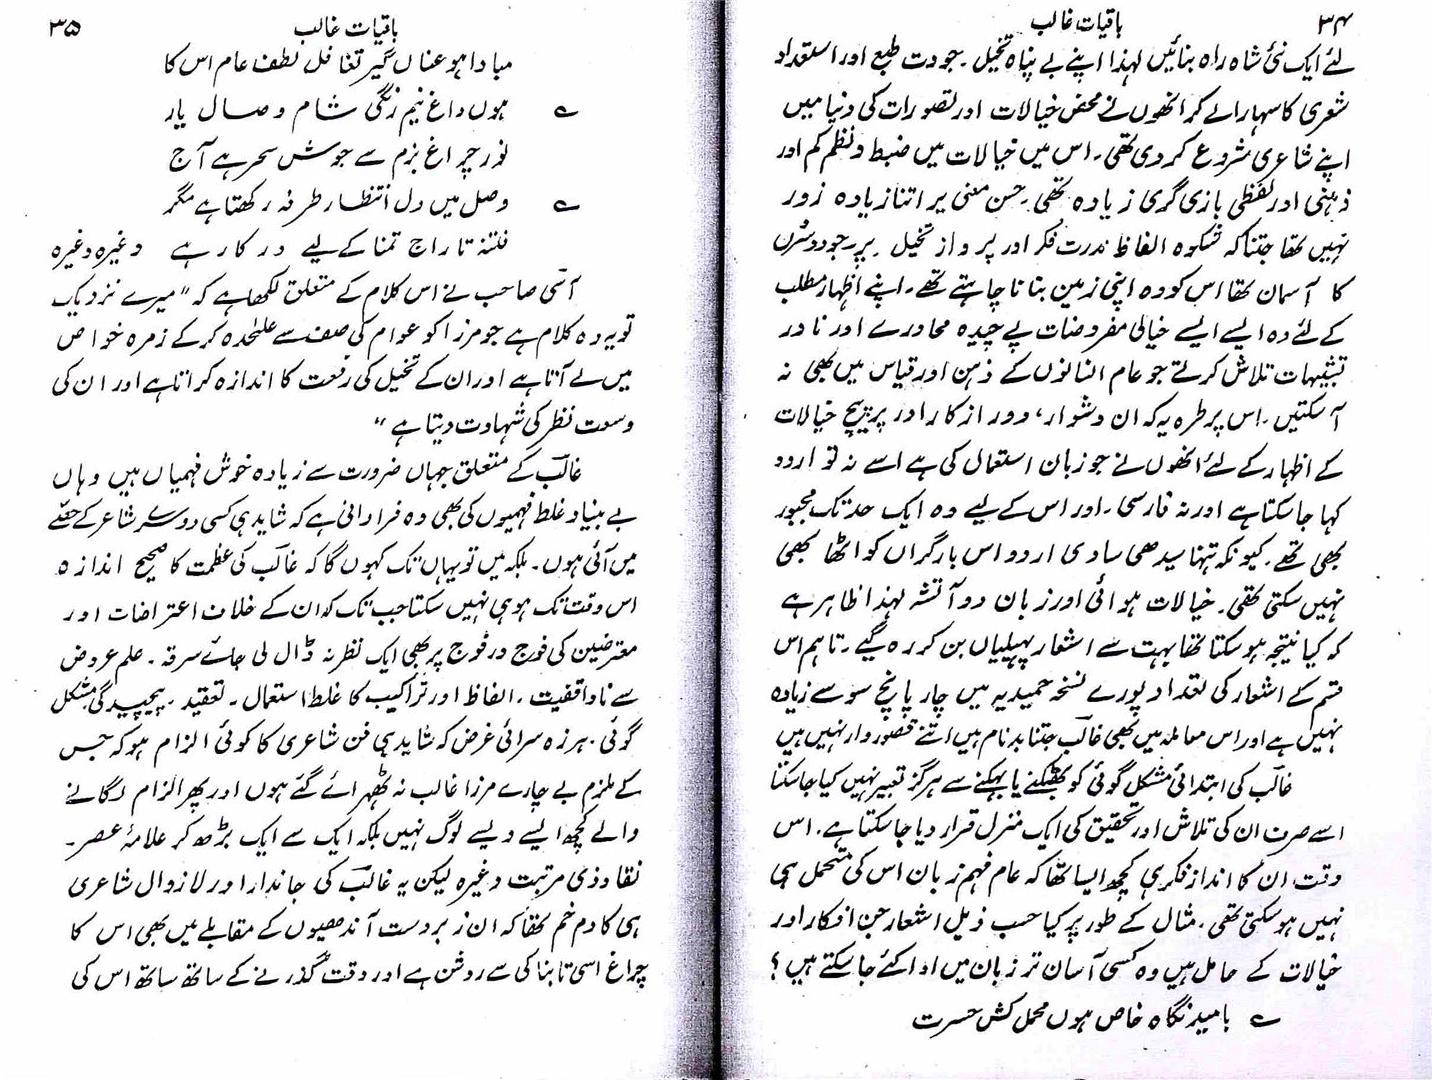 ۳۴
باقیات غالب
لئے ایک نئی شاہ راہ بنائیں لہٰذا اپنے بے پناہ تخیل ۔ جودت طبع اور استعداد
شعری کا سہارا لے کر انھوں نے محض خیالات اور تصورات کی دنیا میں
اپنے شاعری شروع کر دی تھی ۔ اس میں خیالات میں ضبط و نظم کم اور
ذہنی اور لفظی بازی گری زیادہ تھی ۔ حسن معنی پر اتنا زیادہ زور
نہیں تھا جتنا کہ شکوہ الفاظ ندرت فکر اور پرواز تخیل ۔ پر ۔ جو دوسروں
کا آسمان تھا اس کو وہ اپنی زمین بنانا چاہتے تھے ۔ اپنے اظہار مطلب
کے لئے وہ ایسے ایسے خیالی مفروضات پے چیدہ محاورے اور نادر
تشبیہات تلاش کرتے جو عام انسانوں کے ذہن اور قیاس میں بھی نہ
آ سکتیں ۔ اس پر طرہ یہ کہ ان دشوار، دور از کار اور پر پیچ خیالات
کے اظہار کے لئے انھوں نے جو زبان استعمال کی ہے اسے نہ تو اردو
کہا جا سکتا ہے اور نہ فارسی ۔ اور اس کے لیے وہ ایک حد تک مجبور
بھی تھے ۔ کیونکہ تنہا سیدھی سادی اردو اس بار گراں کو اٹھا بھی
نہیں سکتی تھی ۔ خیالات ہوائی اور زبان دو آتشہ لہٰذا ظاہر ہے
کہ کیا نتیجہ ہو سکتا تھا بہت سے اشعار پہیلیاں بن کر رہ گیے ۔ تاہم اس
قسم کے اشعار کی تعداد پورے نسخہ حمیدیہ میں چار پانچ سو سے زیادہ
نہیں ہے اور اس معاملہ میں بھی غالبؔ جتنا بدنام ہیں اتنے قصور وار نہیں ہیں
غالبؔ کی ابتدائی مشکل گوئی کو بھٹکنے یا بہکنے سے ہرگز تعبیر نہیں کیا جا سکتا
اسے صرف ان کی تلاش اور تحقیق کی ایک منزل قرار دیا جا سکتا ہے ۔ اس
وقت ان کا انداز فکر ہی کچھ ایسا تھا کہ عام فہم زبان اس کی متحمل ہی
نہیں ہو سکتی تھی ۔ مثال کے طور پر کیا حسب ذیل اشعار جن افکار اور
خیالات کے حامل ہیں وہ کسی آسان تر زبان میں ادا کئے جا سکتے ہیں ؟
؎ بامید نگاہ خاص ہوں محمل کش حسرت
باقیات غالب
۳۵
مبادا ہو عناں گیر تغافل لطف عام اس کا
؎ ہوں داغ نیم رنگی شام وصال یار
نور چراغ بزم سے جوش سحر ہے آج
؎ وصل میں دل انتظار طرفہ رکھتا ہے مگر
فتنہ تاراج تمنا کے لیے درکار ہے وغیرہ وغیرہ
آسی صاحب نے اس کلام کے متعلق لکھا ہے کہ " میرے نزدیک
تو یہ وہ کلام ہے جو مرزا کو عوام کی صف سے علیٰحدہ کر کے زمرہ خواص
میں لے آتا ہے اور ان کے تخیل کی رفعت کا اندازہ کراتا ہے اور ان کی
وسعت نظر کی شہادت دیتا ہے "
غالبؔ کے متعلق جہاں ضرورت سے زیادہ خوش فہمیاں ہیں وہاں
بے بنیاد غلط فہمیوں کی بھی وہ فراوانی ہے کہ شاید ہی کسی دوسرے شاعر کے حصے
میں آئی ہوں ۔ بلکہ میں تو یہاں تک کہوں گا کہ غالبؔ کی عظمت کا صحیح اندازہ
اس وقت تک ہو ہی نہیں سکتا جب تک کہ ان کے خلاف اعتراضات اور
معترضین کی فوج در فوج پر بھی ایک نظر نہ ڈال لی جائے سرقہ ۔ علم عروض
سے ناواقفیت ۔ الفاظ اور تراکیب کا غلط استعمال ۔ تعقید ۔ پیچیدگی مشکل
گوئی ۔ ہرزہ سرائی غرض کہ شاید ہی فن شاعری کا کوئی الزام ہو کہ جس
کے ملزم بے چارے مرزا غالب نہ ٹھہرائے گئے ہوں اور پھر الزام لگانے
والے کچھ ایسے ویسے لوگ نہیں بلکہ ایک سے ایک بڑھ کر علامۂ عصر ۔
نقاد ذی مرتبت وغیرہ لیکن یہ غالبؔ کی جاندار اور لازوال شاعری
ہی کا دم خم تھا کہ ان زبردست آندھیوں کے مقابلے میں بھی اس کا
چراغ اسی تابناکی سے روشن ہے اور وقت گذرنے کے ساتھ ساتھ اس کی